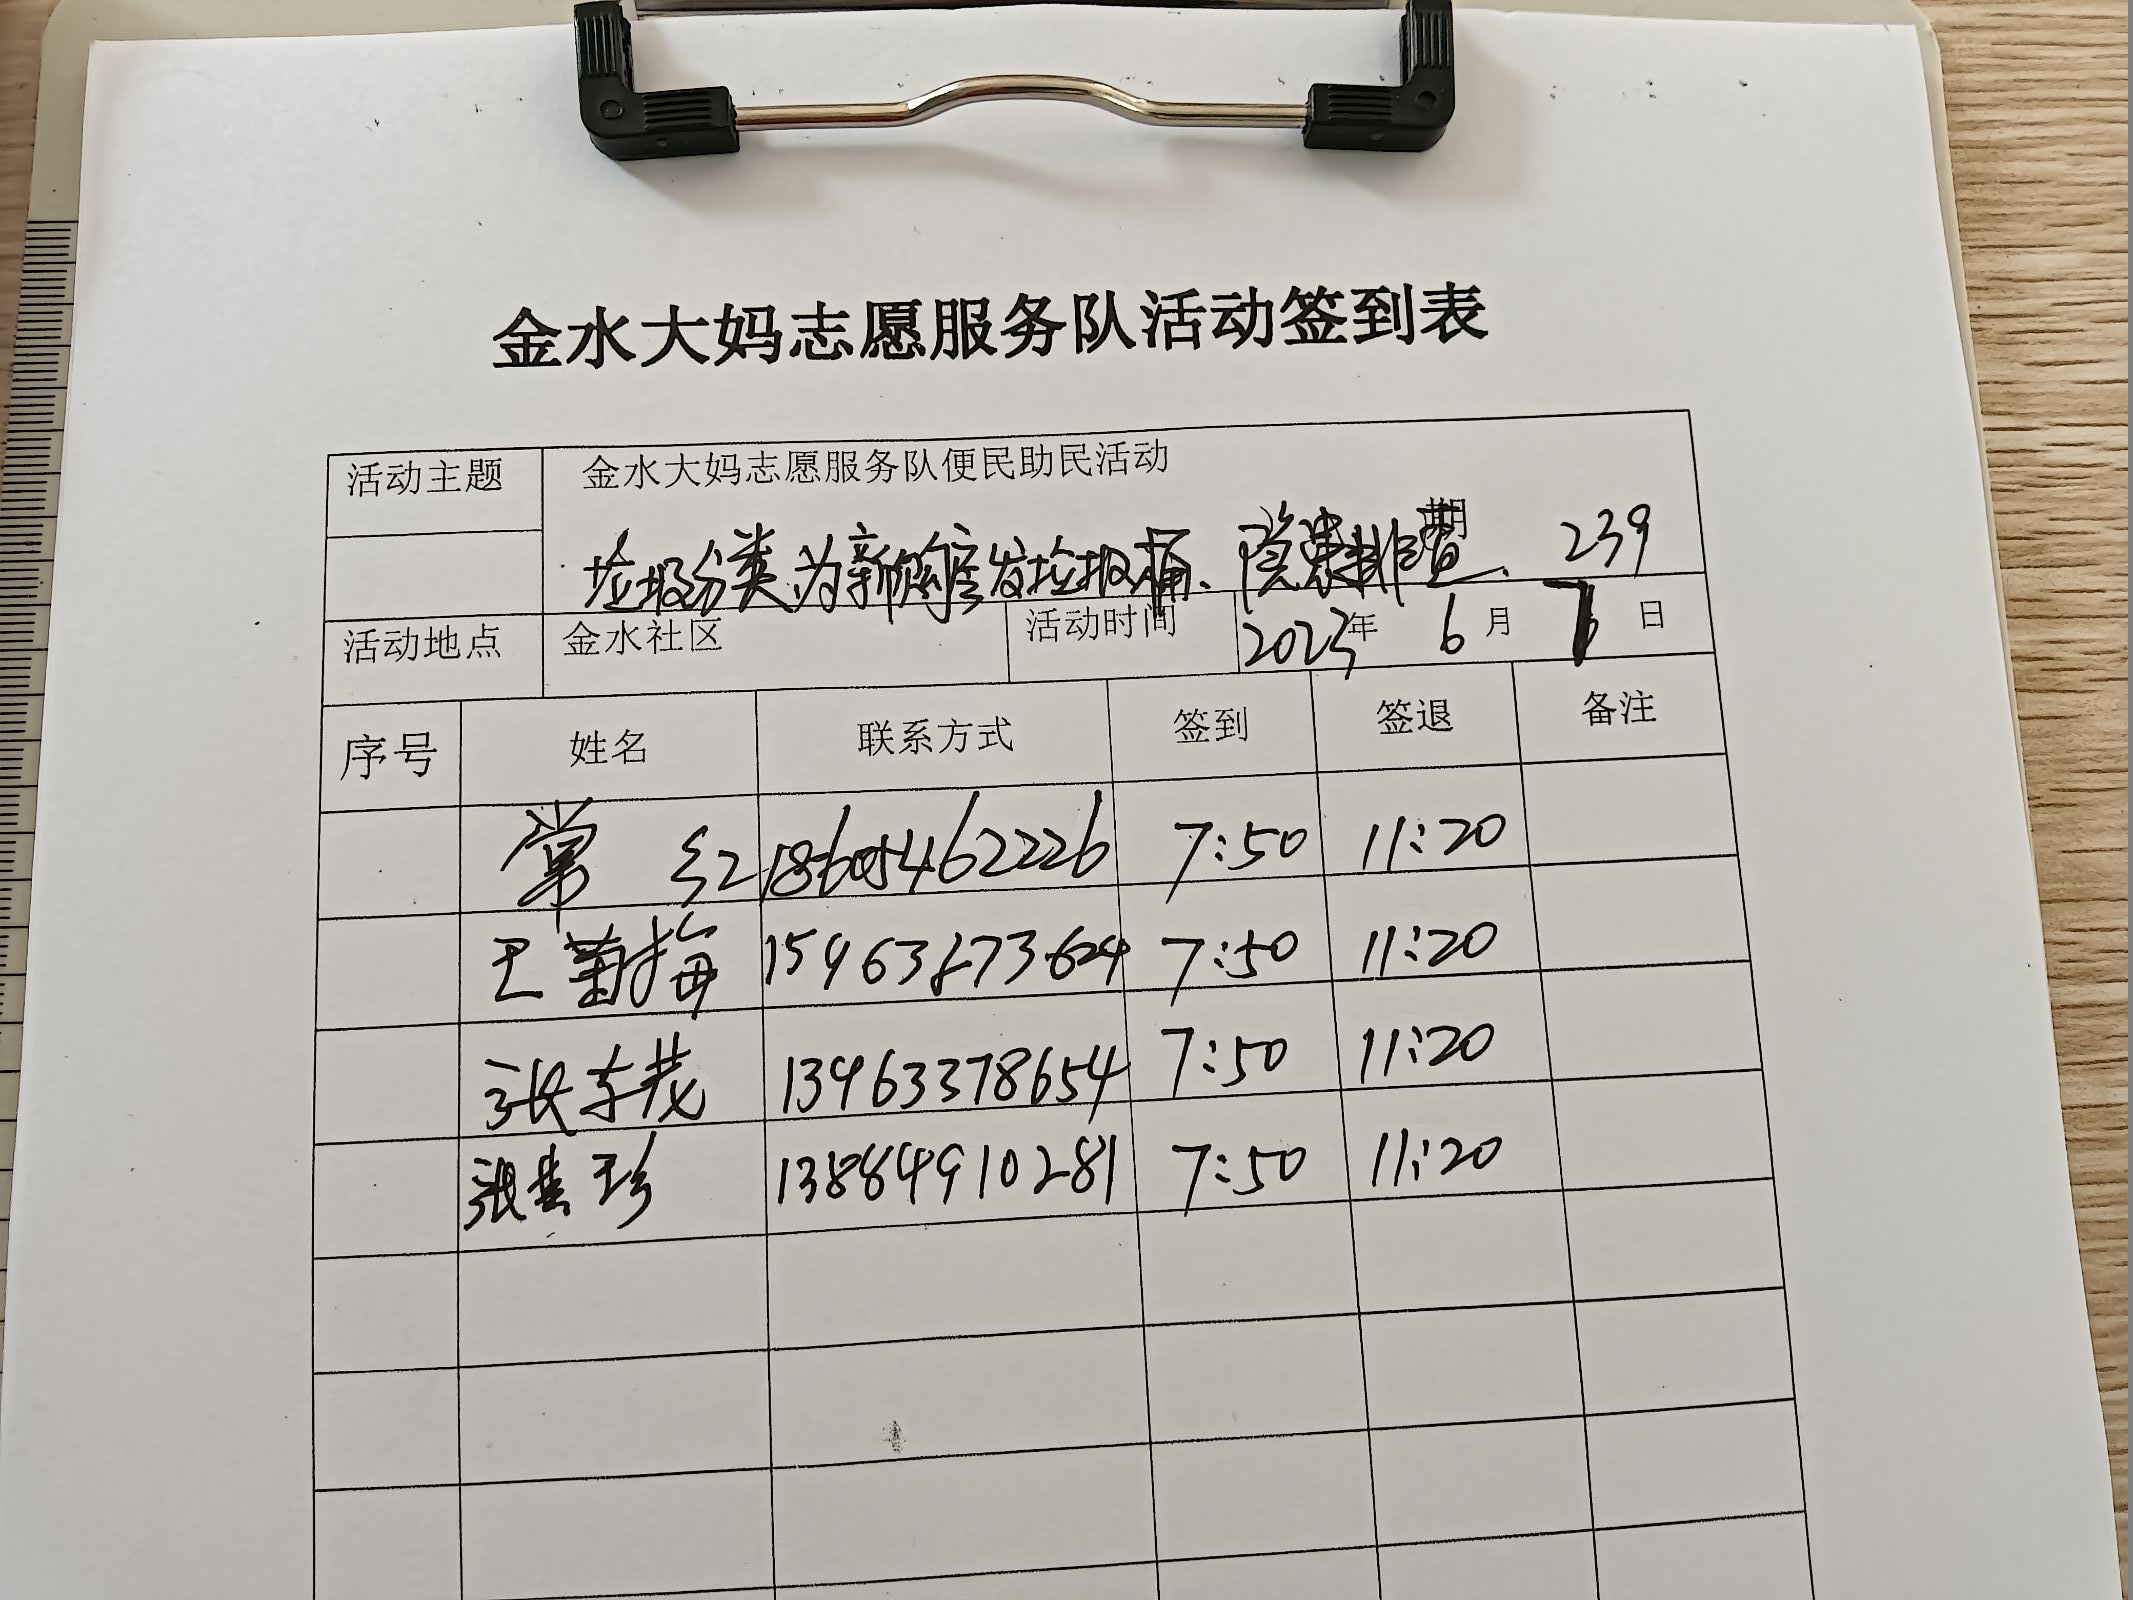 金水大妈志愿服务队活动签到表
活动主题 金水大妈志愿服务队便民助民活动
期
垃圾分类为新购户发垃圾桶、隐患排查、239
活动地点 金水社区 活动时间 2023年 6月 7日
序号 姓名 联系方式 签到 签退 备注
常红 18605462226 7:50 11:20
王菊梅 15963873624 7:50 11:20
张东茂 13963378654 7:50 11:20
张 珍 13884910281 7:50 11:20